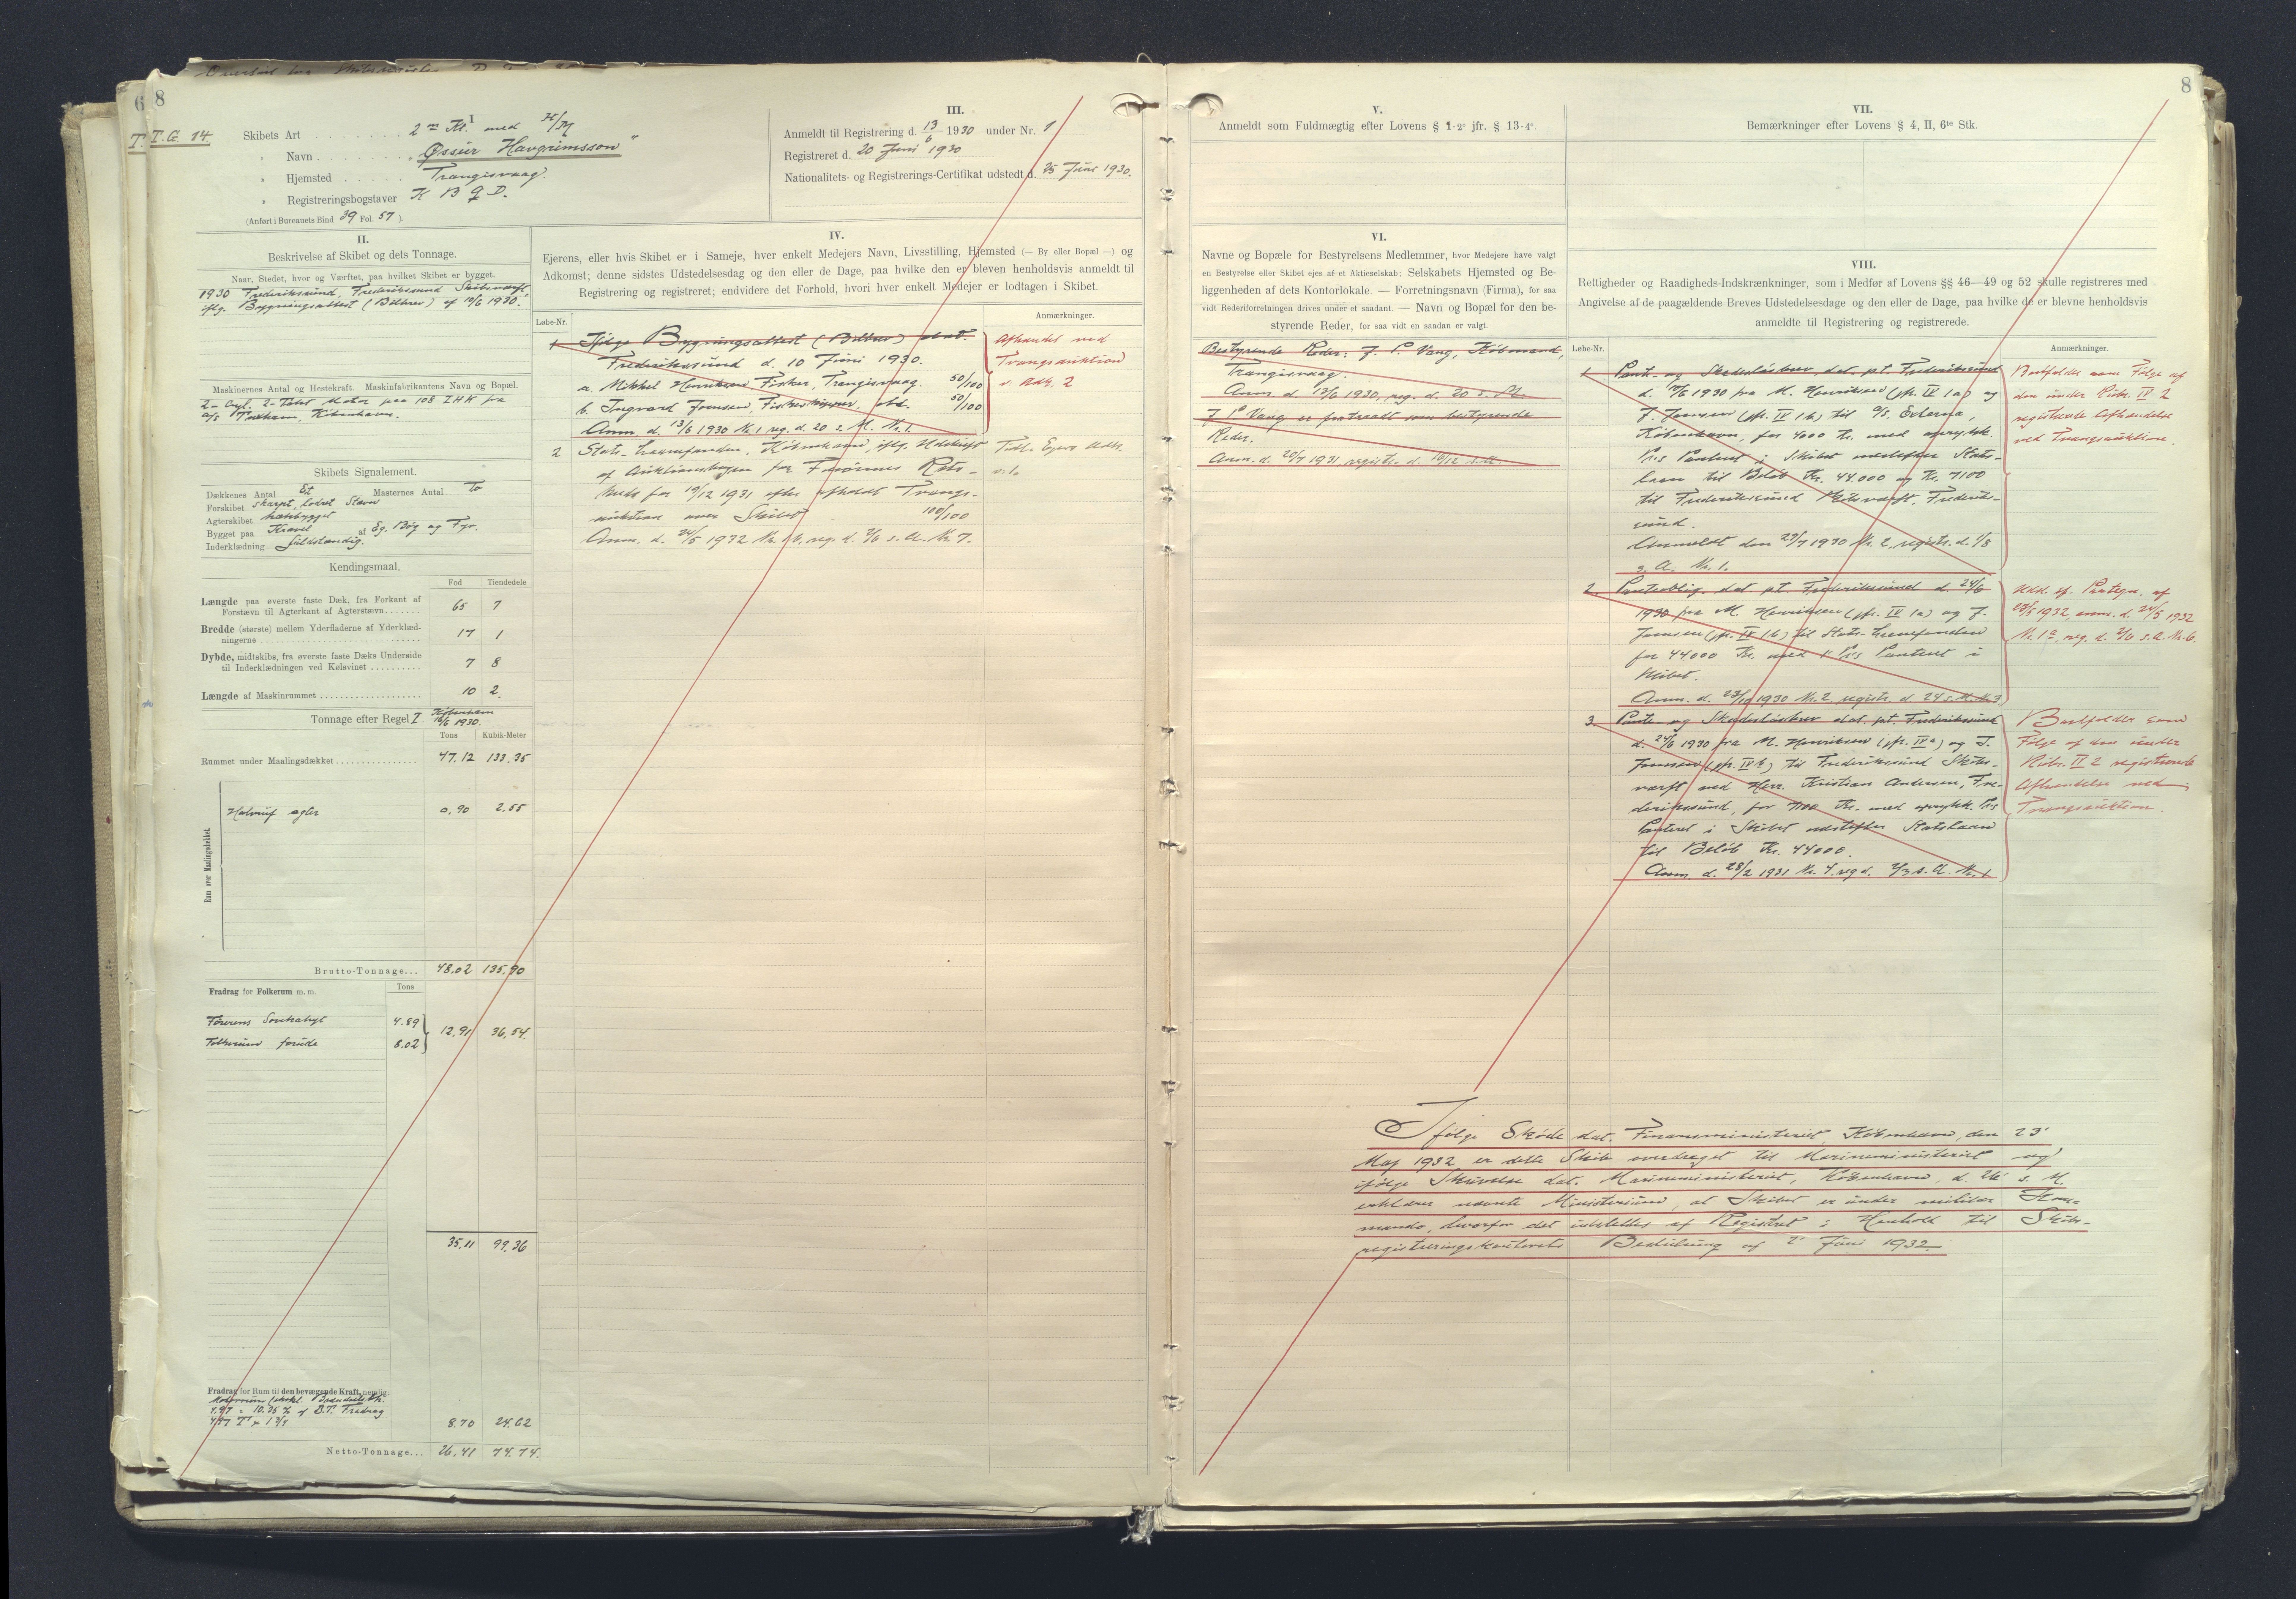 6
8
T.
T.G. 14.
I
Skibets Art . . . . . . . . 2 m Kl. med H/M
" Navn . . . . . . . "Øssur Havgrimsson"
" Hjemsted . . . . . Trangisvaag.
" Registreringsbogstaver
(Anført i Bureauets Bind 39 Fol. 57 ).
III.
Anmeldt til Registrering d. 13/6 1930 under Nr. 1
Registreret d. 20 Juni 1930
Nationalitets- og Registrerings-Certifikat udstedt d. 25 Juni 1930.
II.
Beskrivelse af Skibet og dets Tonnage.
Naar, Stedet, hvor og Værftet, paa hvilket Skibet er bygget.
1930 Frederikssund, Frederikssund Skibsværft,
iflg. Bygningsattest (Bilbrev) af 10/6 1930.
Maskinernes Antal og Hestekraft. Maskinfabrikantens Navn og Bopæl.
2-Cyl. 2-Takt Motor paa 108 IHK fra
A/S Tuxham, København.
Skibets Signalement.
Dækkenes Antal Et Masternes Antal To
Forskibet skarpt, lodret Stævn
Agterskibet
Bygget paa Kravel af Eg, Bøg og Fyr.
Inderklædning fuldstændig.
Kendingsmaal.
Fod Tiendedele
Længde paa øverste faste Dæk, fra Forkant af
Forstævn til Agterkant af Agterstævn . . . . . . . 65 7
Bredde (største) mellem Yderfladerne af Yderklæd-
ningerne . . . . . . . . . . 17 1
Dybde, midtskibs, fra øverste faste Dæks Underside
til Inderklædningen ved Kølsvinet . . . . . . . . . . 7 8
Længde af Maskinrummet . . . . . . . . . . 10 2.
Tonnage efter Regel I København
16/6 1930.
Tons Kubik-Meter
Rummet under Maalingsdækket . . . . . . . . . . 47.12 133.35
Rum over Maalingsdækket.
Halvruf agter 0.90 2.55
Brutto-Tonnage... 48.02 135.90
Fradrag for Folkerum m.m. Tons
Førerens Soveplads 4.89
12.91 36.54.
Folkerum forude 8.02
35.11 99.36
Fradrag for Rum til den bevægende Kraft, nemlig:
4.97 = 10.35 % af B.T. Fradrag
4.97 T x 1 3/4 8.70 24.62
Netto-Tonnage... 26.41 74.74.
IV.
Ejerens, eller hvis Skibet er i Sameje, hver enkelt Medejers Navn, Livsstilling, Hjemsted (— By eller Bopæl —) og
Adkomst; denne sidstes Udstedelsesdag og den eller de Dage, paa hvilke den er bleven henholdsvis anmeldt til
Registrering og registreret; endvidere det Forhold, hvori hver enkelt Medejer er lodtagen i Skibet.
Løbe-Nr.
Anmærkninger.
1 Ifølge Bygningsattest (Bilbrev) dat.
Frederikssund d. 10 Juni 1930.
a. Mikkel Henriksen Fisker, Trangisvaag. 50/100
b. Ingvard Joensen, Fiskeskipper, ibd. 50/100
Anm. d. 13/6 1930 Nr. 1 reg. d. 20 s. M. Nr. 1.
Afhændet ved
Tvangsauktion
v. Adk. 2
2 Stats-Laanefonden, København, iflg. Udskrift
af Auktionsbogen for Færøernes Rets-
kreds for 19/12 1931 efter afholdt Tvangs-
auktion over Skibet 100/100
Anm. d. 24/5 1932 Nr. 1b, reg. d. 2/6 s. A. Nr. 7.
Tidl. Ejers Adk.
v. 1.
8
V.
Anmeldt som Fuldmægtig efter Lovens § 1-2° jfr. § 13-4°.
VI.
Navne og Bopæle for Bestyrelsens Medlemmer, hvor Medejere have valgt
en Bestyrelse eller Skibet ejes af et Aktieselskab; Selskabets Hjemsted og Be-
liggenheden af dets Kontorlokale. — Forretningsnavn (Firma), for saa
vidt Rederiforretningen drives under et saadant. — Navn og Bopæl for den be-
styrende Reder, for saa vidt en saadan er valgt.
Bestyrende Reder: J. P. Vang, Købmand,
Trangisvaag.
Anm. d. 13/6 1930, reg. d. 20 s. M.
J. P. Vang er fratraadt som bestyrende
Reder.
Anm. d. 20/7 1931, registr. d. 16/12 s. A.
VII.
Bemærkninger efter Lovens § 4, II, 6te Stk.
VIII.
Rettigheder og Raadigheds-Indskrænkninger, som i Medfør af Lovens §§ 46—49 og 52 skulle registreres med
Angivelse af de paagældende Breves Udstedelsesdage og den eller de Dage, paa hvilke de er blevne henholdsvis
anmeldte til Registrering og registrerede.
Løbe-Nr.
Anmærkninger.
1. Pant- og Skadesløsbrev, dat. pt. Frederikssund
d. 10/6 1930 fra M. Henriksen (jfr. IV 1a) og
J. Joensen (jfr. IV 1b) til A/S.
København, for 4000 Kr. med oprykk.
Pris Panteret i Skibet næstefter Stats-
laan til Beløb Kr. 44.000 og Kr. 7100
til Frederikssund Skibsværft, Frederiks-
sund.
Anmeldt den 29/7 1930 Nr. 2, registr. d. 1/8
s. A. Nr. 1.
Bortfalder som Følge af
den under Rubr. IV 2
registrerede Afhændelse
ved Tvangsauktion.
2. Panteoblig. dat. pt. Frederikssund d. 24/6
1930 fra M. Henriksen (jfr. IV 1a) og J.
Joensen (jfr. IV 1b) til Stats-Laanefonden
for 44000 Kr. med 1' Pris Panteret i
Skibet.
Anm. d. 23/10 1930 Nr. 2 registr. d. 24 s. M. Nr. 3
Udd. if. Pantegn. af
1932, anm. d. 24/5 1932
Nr. 1a, reg. d. 2/6 s. A. Nr. 6.
3. Pante- og Skadesløsbrev dat. pt. Frederikssund
d. 24/6 1930 fra M. Henriksen (jfr. IVa) og J.
Joensen (jfr. IVb) til Frederikssund Skibs-
værft ved Herr. Kristian Andersen, Fre-
derikssund, for 7100 Kr. med oprykk. Pris
Panteret i Skibet næstefter Statslaan
til Beløb Kr. 44000.
Anm. d. 28/2 1931 Nr. 4. reg. d. 2/3 s. A. Nr. 1
Bortfalder som
Følge af den under
Rubr. IV 2 registrerede
Afhændelse ved
Tvangsauktion.
Ifølge Skøde dat. Finansministeriet, København, den 23'
Maj 1932 er dette Skib overdraget til Marineministeriet og
ifølge Skrivelse dat. Marineministeriet, København, d. 26 s. M.
erklærer nævnte Ministerium, at Skibet er under militær Kom-
mando, hvorfor det udslettes af Registret i Henhold til Skibs-
registreringskontorets Beslutning af 2' Juni 1932.